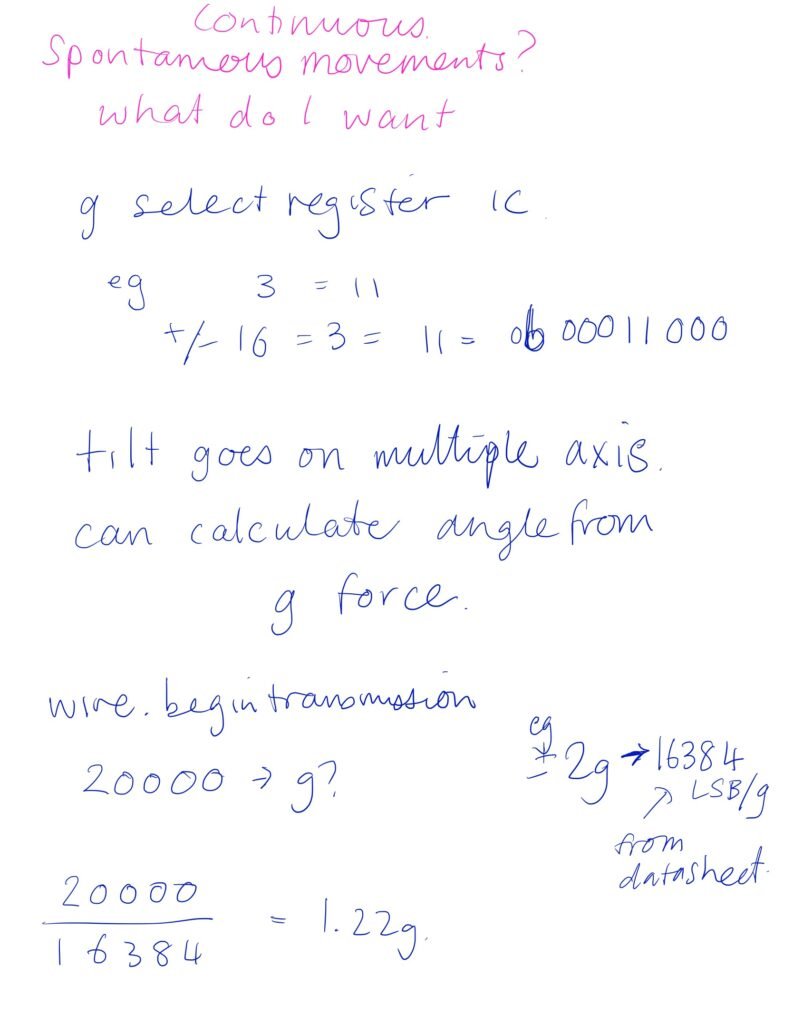 Continuous.
Spontaneous movements?
what do I want
g select register 1C.
eg 3 = 11
+/- 16 = 3 = 11 = 0b 00011000
tilt goes on multiple axis.
can calculate angle from
g force.
wire.begintransmission
20000 → g?
eg
± 2g → 16384
LSB/g
from
datasheet.
20000
16384
= 1.22g.